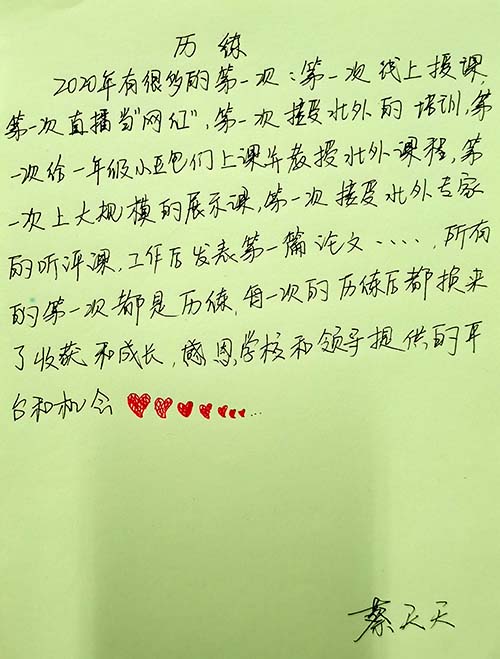 历 练
2020年有很多的第一次：第一次线上授课，
第一次直播当"网红"，第一次接受北外的培训，第
一次给一年级小豆包们上课并教授北外课程，第
一次上大规模的展示课，第一次接受北外专家
的听评课，工作后发表第一篇论文……，所有
的第一次都是历练，每一次的历练后都换来
了收获和成长，感恩学校和领导提供的平
台和机会
蔡天天